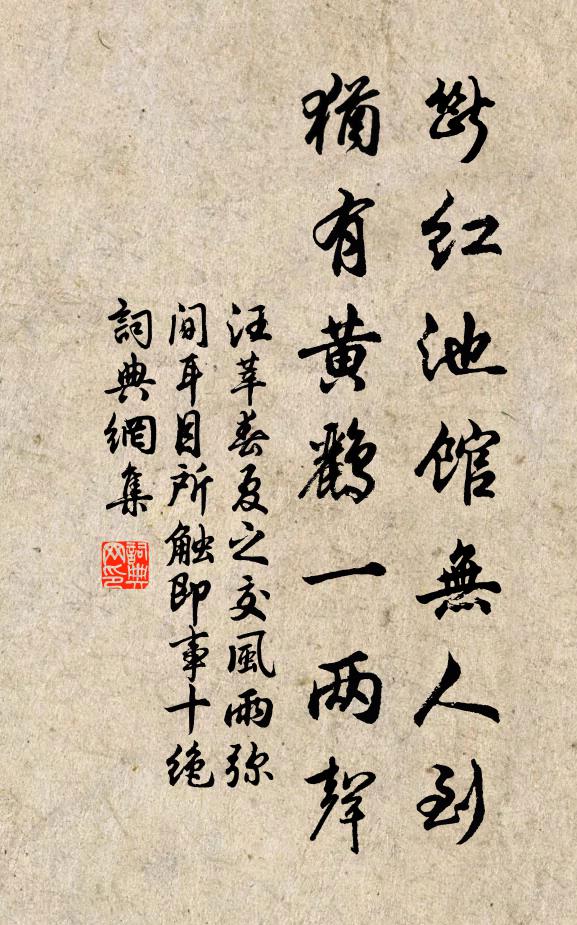 断红池馆無人到
猶有黄鸝一两聲
汪莘春夏之交風雨弥
间耳目所触即事十绝
詞典網集
詞典網印